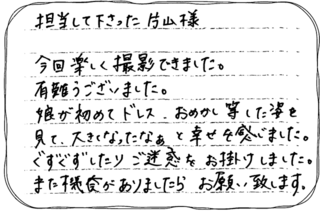 担当して下さった片山様
今回楽しく撮影できました。
有難うございました。
娘が初めてドレス、おめかし等した姿を
見て、大きくなったなぁと幸せを感じました。
ぐずぐずしたりご迷惑をお掛けしました。
また機会がありましたらお願い致します。